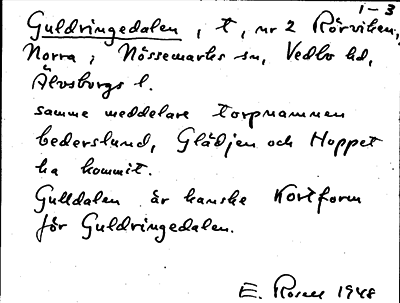 1-3
Guldringedalen, t, nr 2 Rörviken,
Norra; Nössemarks sn, Vedbo hd,
Älvsborgs l.
samme meddelare torpnamnen
bederslund, Glädjen och Hoppet
ha kommit.
Gulldalen är kanske Kortform
för Guldringedalen.
E. Rosell 1948